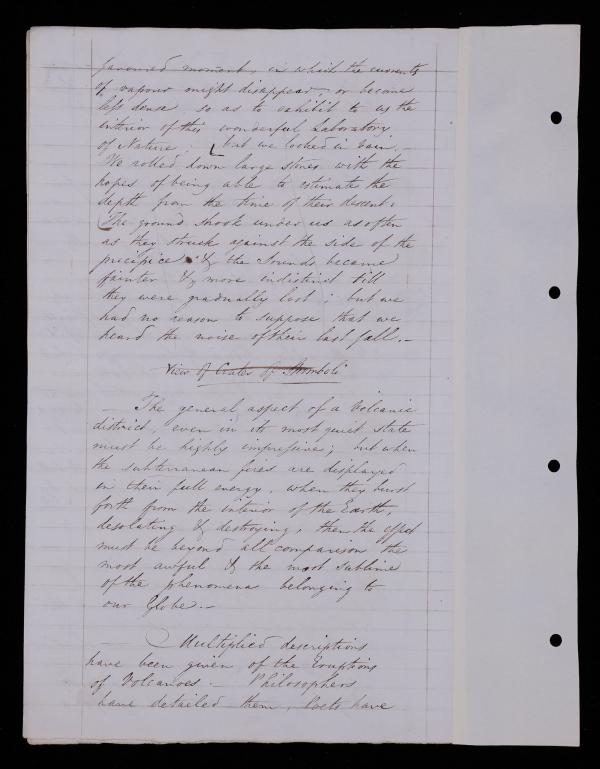 favoured moment, in which the currents
of vapour might disappear, or become
less dense, so as to exhibit to us the
interior of this wonderful Laboratory
of Nature; but we looked in vain. —
We rolled down large stones with the
hopes of being able to estimate the
depth from the time of their descent.
The ground shook under us as often
as they struck against the side of the
precipice & the sounds became
fainter & more indistinct till
they were gradually lost; but we
had no reason to suppose that we
heard the noise of their last fall. —
View of Crater of Stromboli
— The general aspect of a Volcanic
district, even in its most quiet state
must be highly impressive; but when
the subterranean fires are displayed
in their full energy, when they burst
forth from the interior of the Earth,
desolating & destroying, then the effect
must be beyond all comparison the
most awful & the most sublime
of the phenomena belonging to
our Globe. —
— Multiplied descriptions
have been given of the Eruptions
of Volcanoes. — Philosophers
have detailed them, Poets have